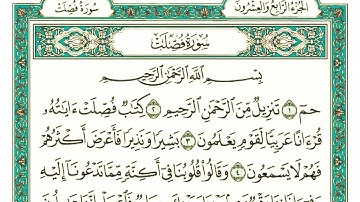 الجزء الرابع والعشرون
سورة فصلت
سورة فصلت
بِسْمِ اللَّهِ الرَّحْمَٰنِ الرَّحِيمِ
حمٓ ١ تَنزِيلٌ مِّنَ الرَّحْمَٰنِ الرَّحِيمِ ٢ كِتَٰبٌ فُصِّلَتْ ءَايَٰتُهُۥ
قُرْءَانًا عَرَبِيًّا لِّقَوْمٍ يَعْلَمُونَ ٣ بَشِيرًا وَنَذِيرًا فَأَعْرَضَ أَكْثَرُهُمْ
فَهُمْ لَا يَسْمَعُونَ ٤ وَقَالُوا۟ قُلُوبُنَا فِىٓ أَكِنَّةٍ مِّمَّا تَدْعُونَآ إِلَيْهِ